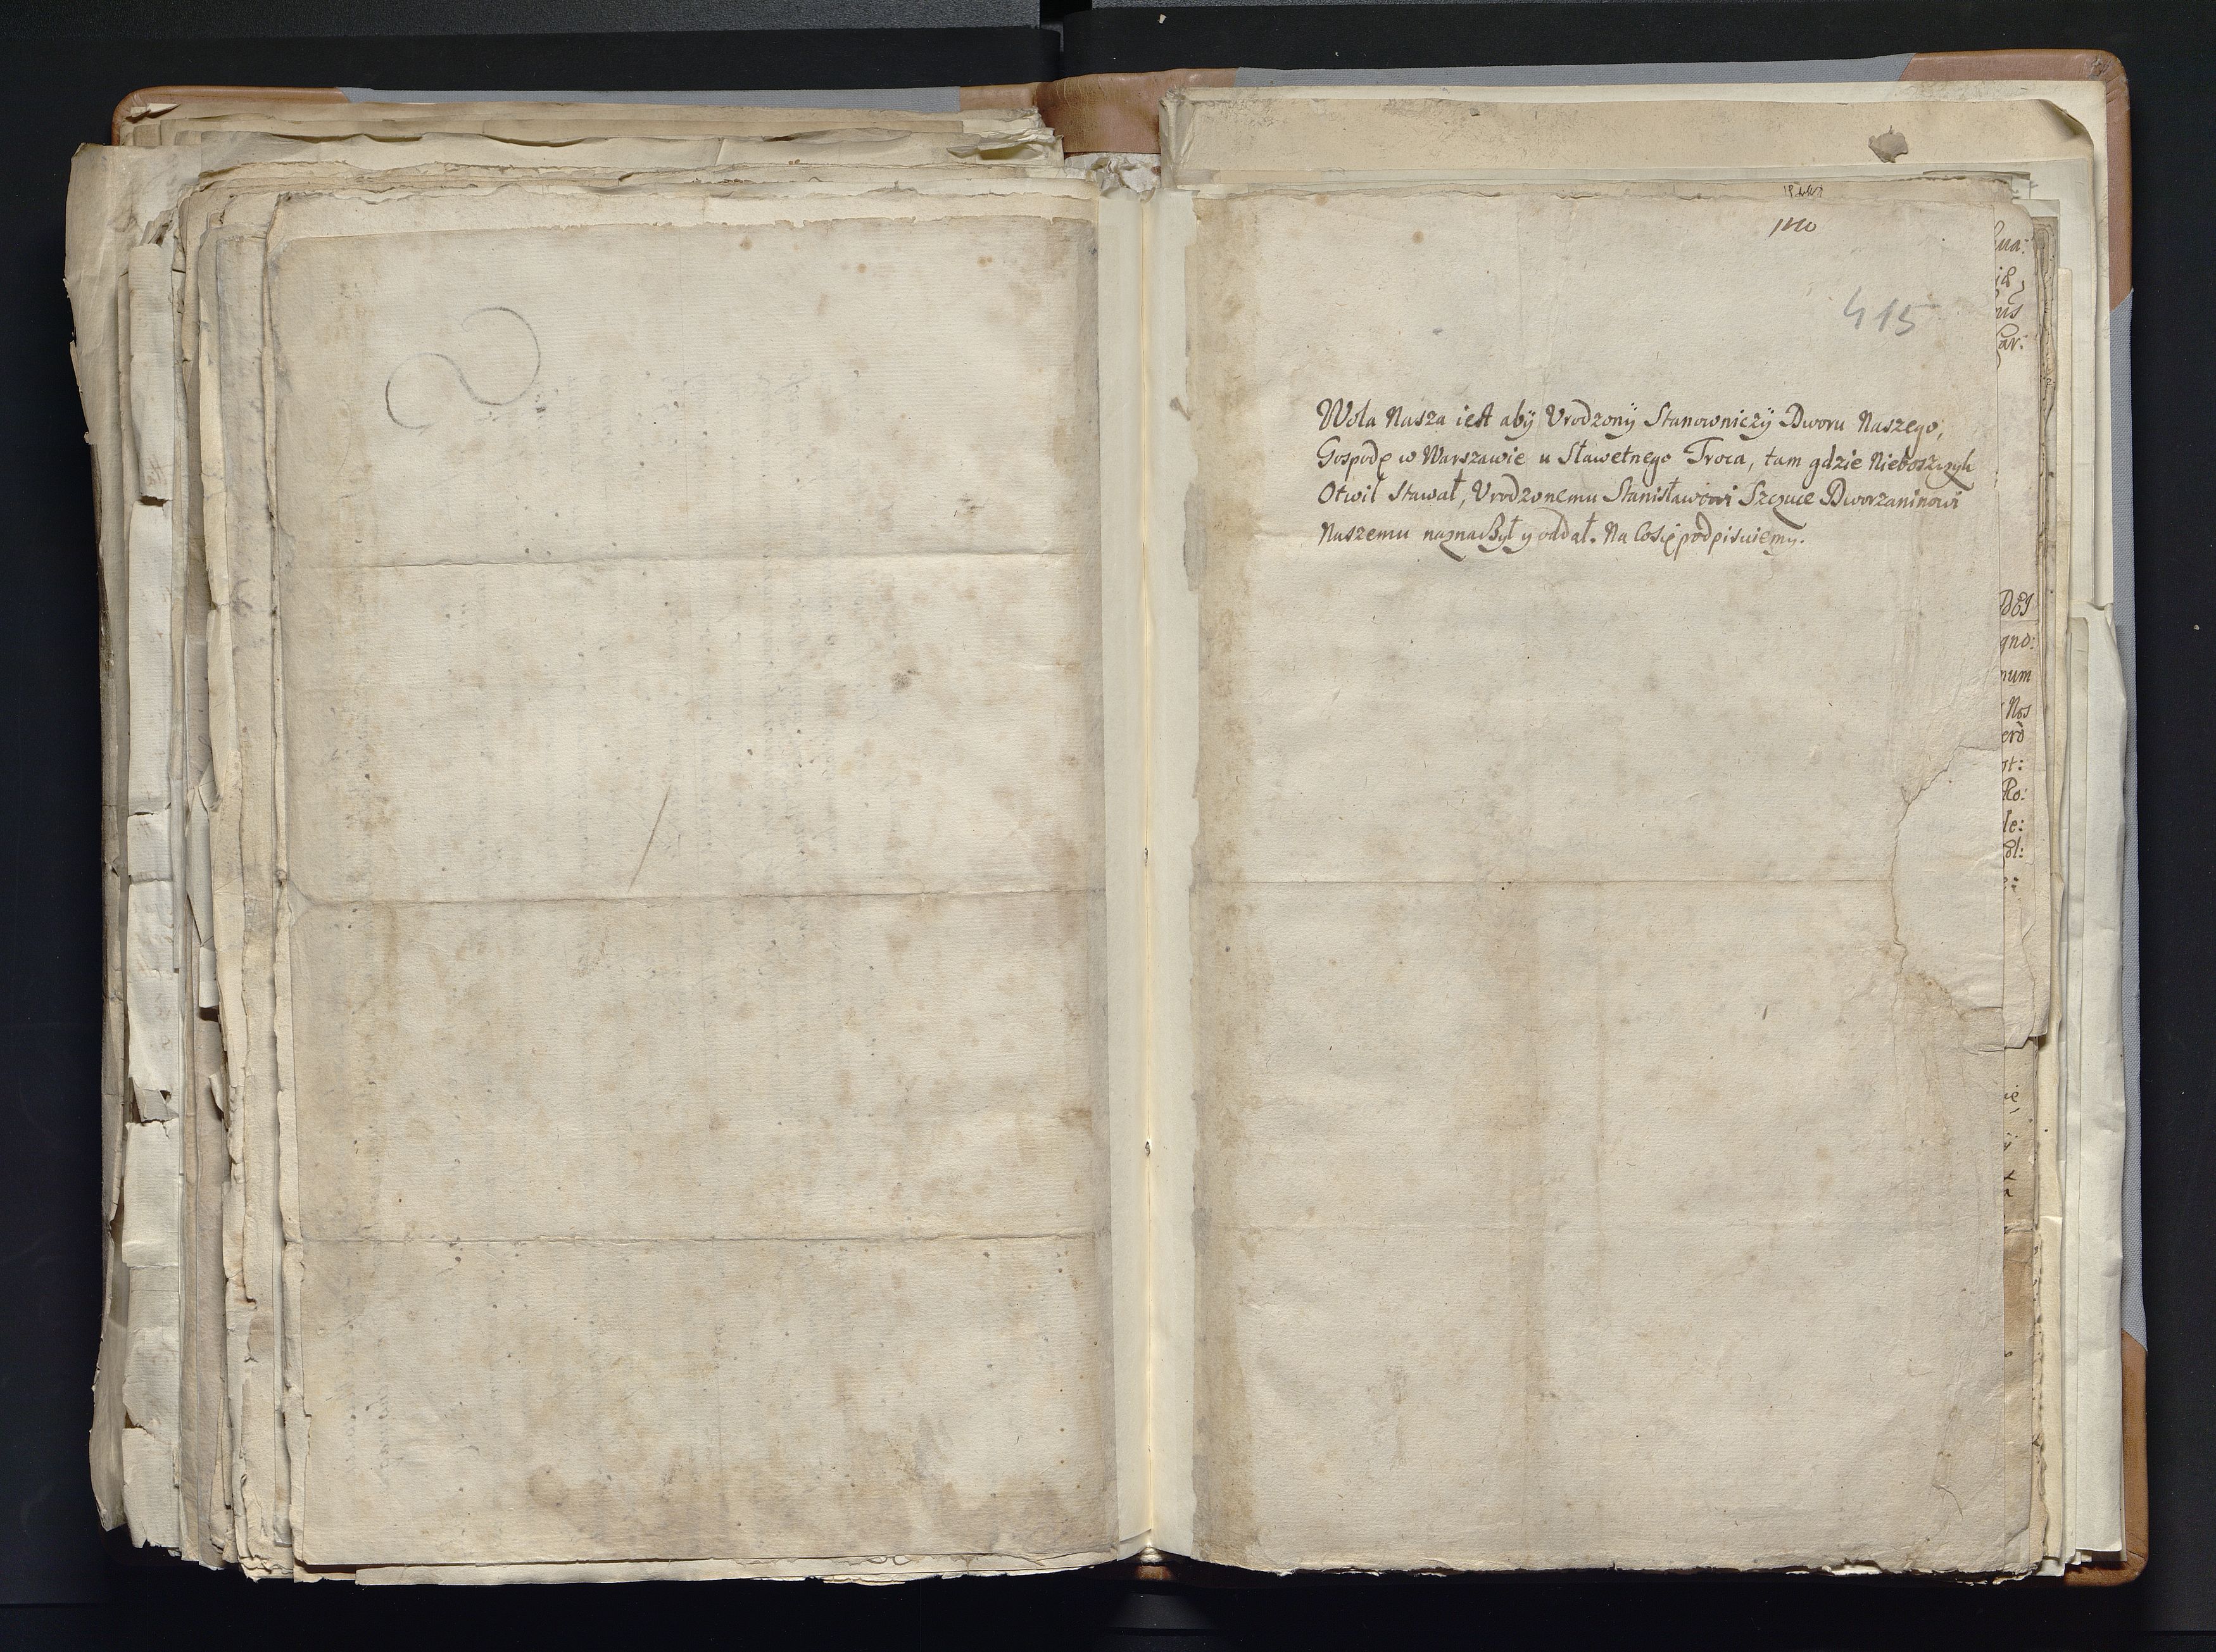 415
Wola Nasza iest aby Vrodzony Stanowniczy Dworu Naszego,
Gospodę w Warszawie u Sławetnego Troca, tam gdzie Nieboszczyk
Otwił Stawał, Vrodzonemu Stanisławowi Szczuce Dworzaninowi
Naszemu naznaczył y oddał. Na co się podpisuiemy.
gno:
num
Nos
Ro:
le: